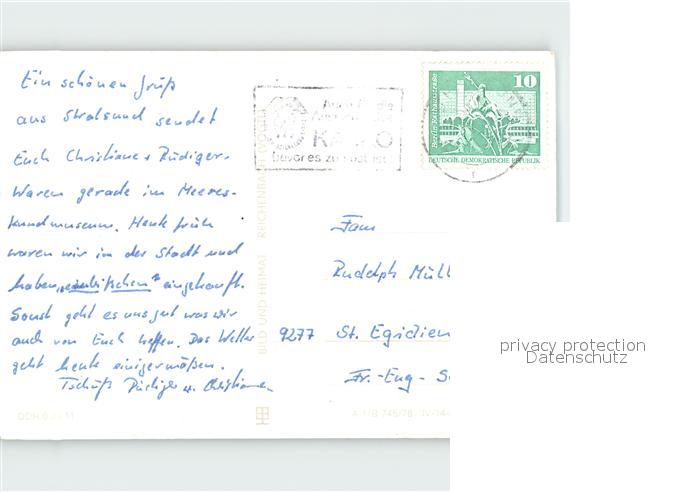 Ein schönen Gruß
aus Stralsund sendet
Euch Christiane + Rüdiger.
Waren gerade im Meeres-
kundmuseum. Heute früh
waren wir in der Stadt und
haben "ein bißchen" eingekauft.
Sonst geht es uns gut was wir
auch von Euch hoffen. Das Wetter
geht heute einigermaßen.
Tschüß Rüdiger u. Christiane
BILD UND HEIMAT REICHENBACH
bevor es zu
10
DEUTSCHE DEMOKRATISCHE REPUBLIK
Fam
Rudolph Müll
9277 St. Egidien
Fr.-Eng-
A 1/B 745/76 IV-14-
privacy protection
Datenschutz